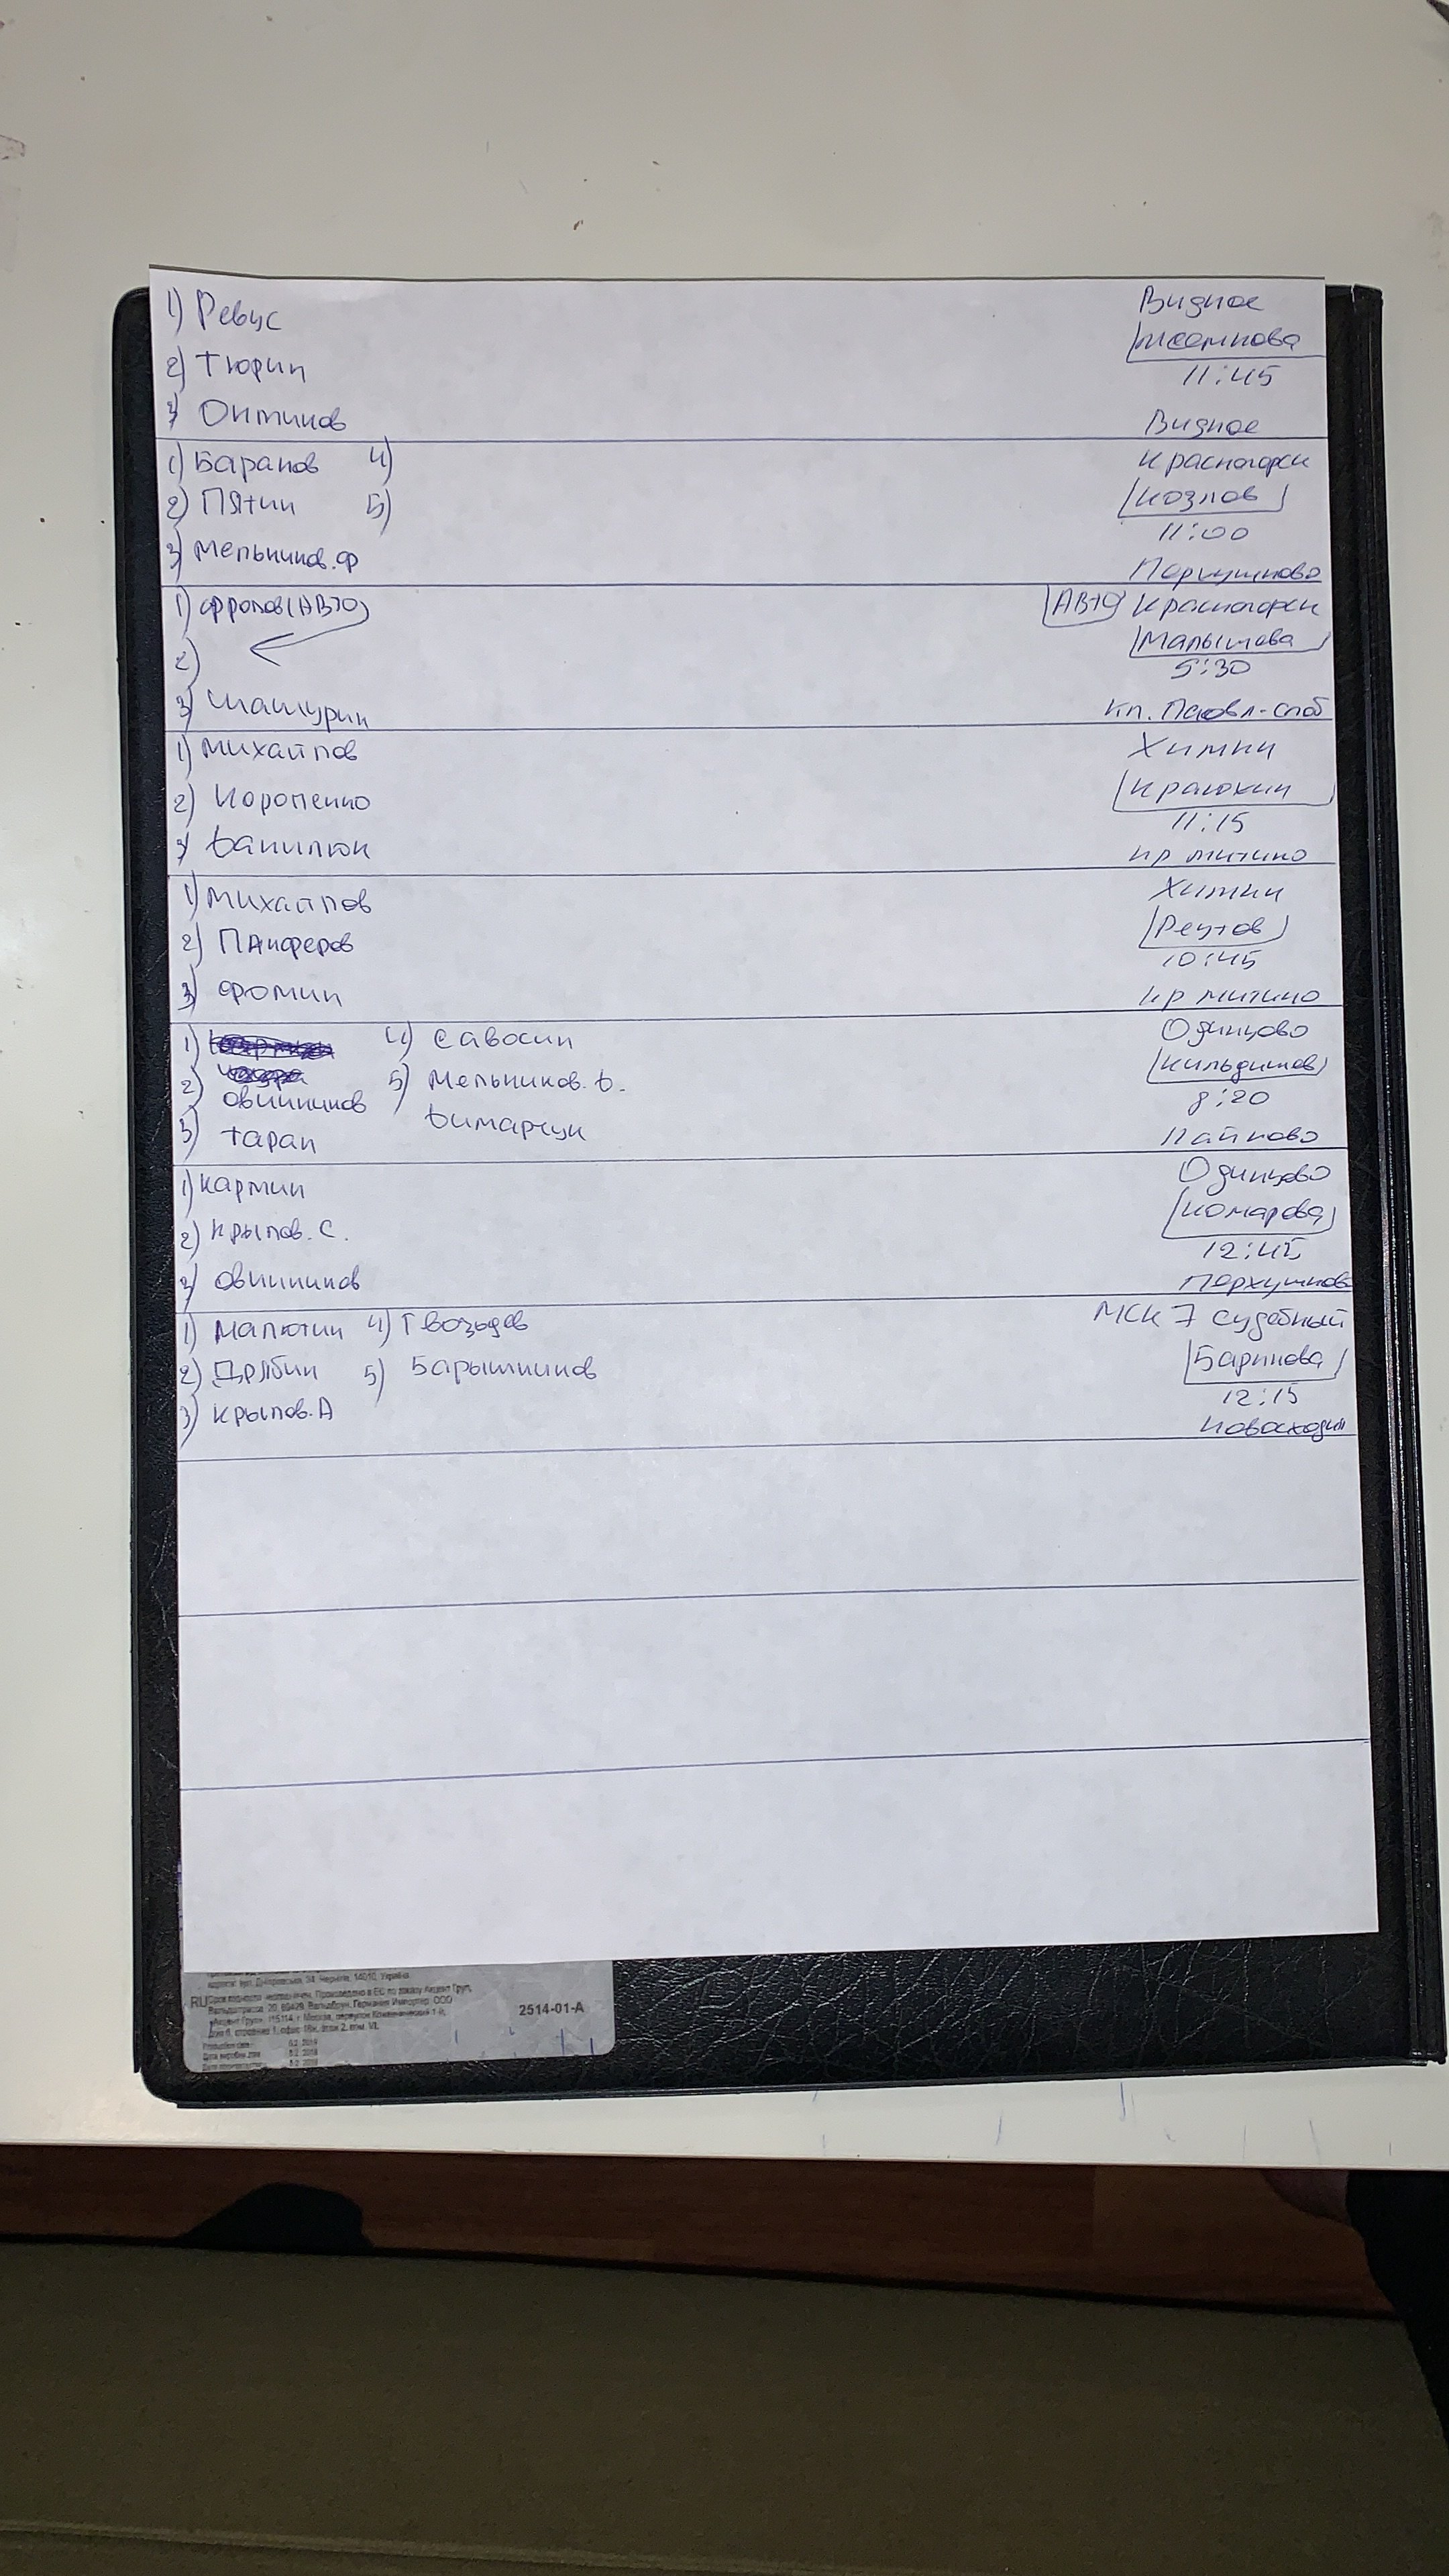 1) Ревус
2) Тюрин
3) Онтиков
Видное
11:45
Видное
1) Баранов 4)
2) Пятин 5)
3) Мельников.Ф
Красногорск
Козлов
11:00
Перхушково
1) Фролов (АВЗО)
2)
3) Шашурин
АВЗО Красногорск
Малышова
5:30
Кп. Павл-Слоб
1) Михайлов
2) Короленко
3) Данилюк
Химки
Краюхин
11:15
Кр митино
1) Михайлов
2) Панферов
3) Фомин
Химки
Реутов
10:45
Кр митино
1) 4) Савосин
2) Овчинников 5) Мельников.Д.
3) Таран Димарчук
Одинцово
Кильдишов
8:20
Лайково
1) Кармин
2) Крылов.С.
3) Овчинников
Одинцово
Комарова
12:45
Перхушково
1) Малютин 4) Гвоздев
2) Дрябин 5) Барышников
3) Крылов.А
МСК 7 судебный
Баринова
12:15
Новосходн
RU
2514-01-A